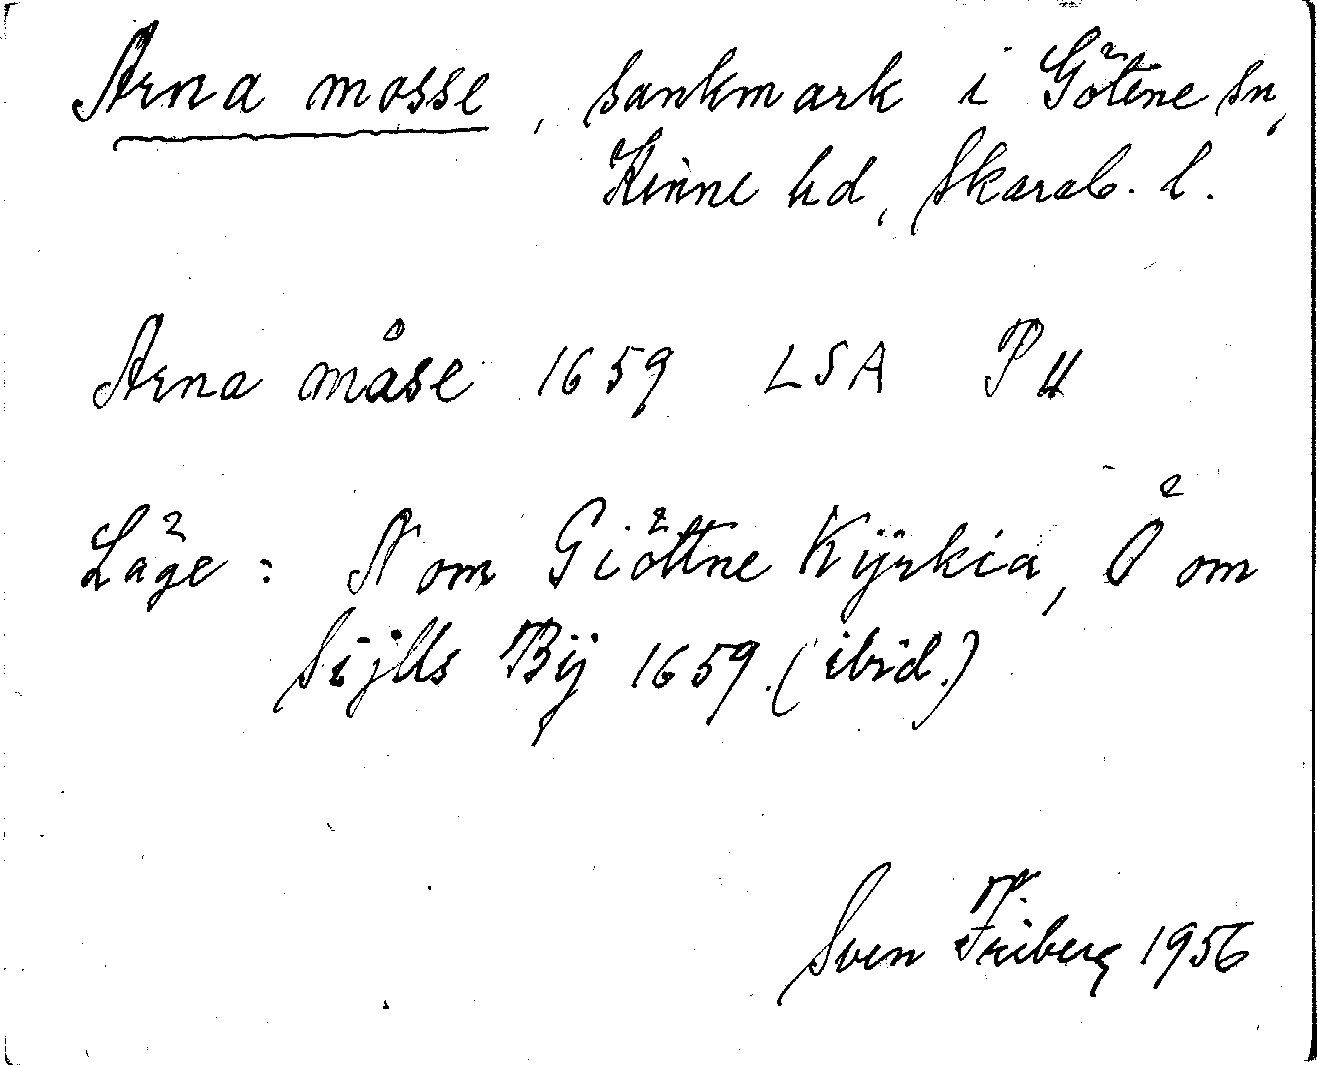 Arna mosse, sankmark i Götene sn,
Kinne hd, Skarab. l.
Arna måse 1659 LSA P 11
Läge: N om Giöttne Kÿrkia, Ö om
Sijlls Bÿ 1659. (ibid.)
Sven Friberg 1956